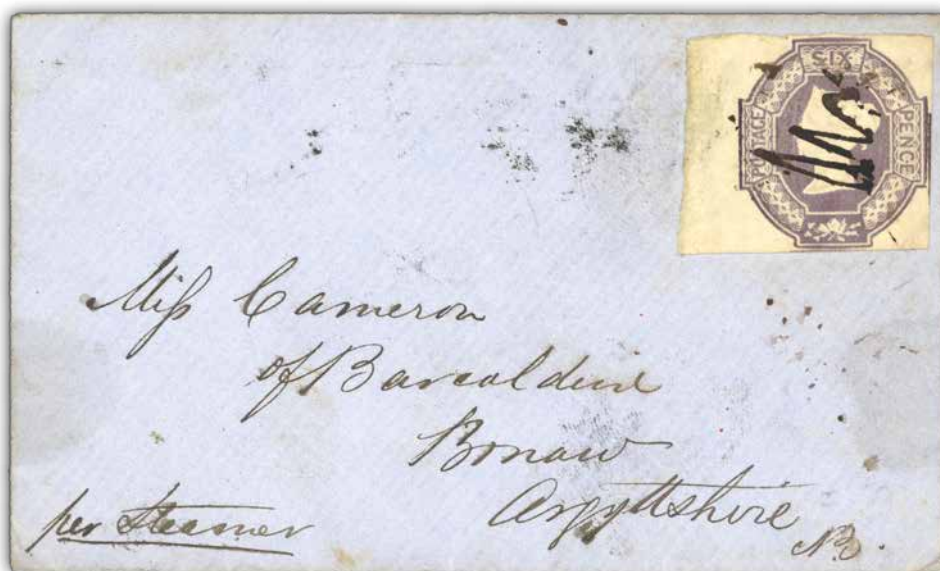 POSTAGE SIX PENCE
Miss Cameron
of Barcaldine
Bonaw
Argyllshire
N.B.
per Steamer